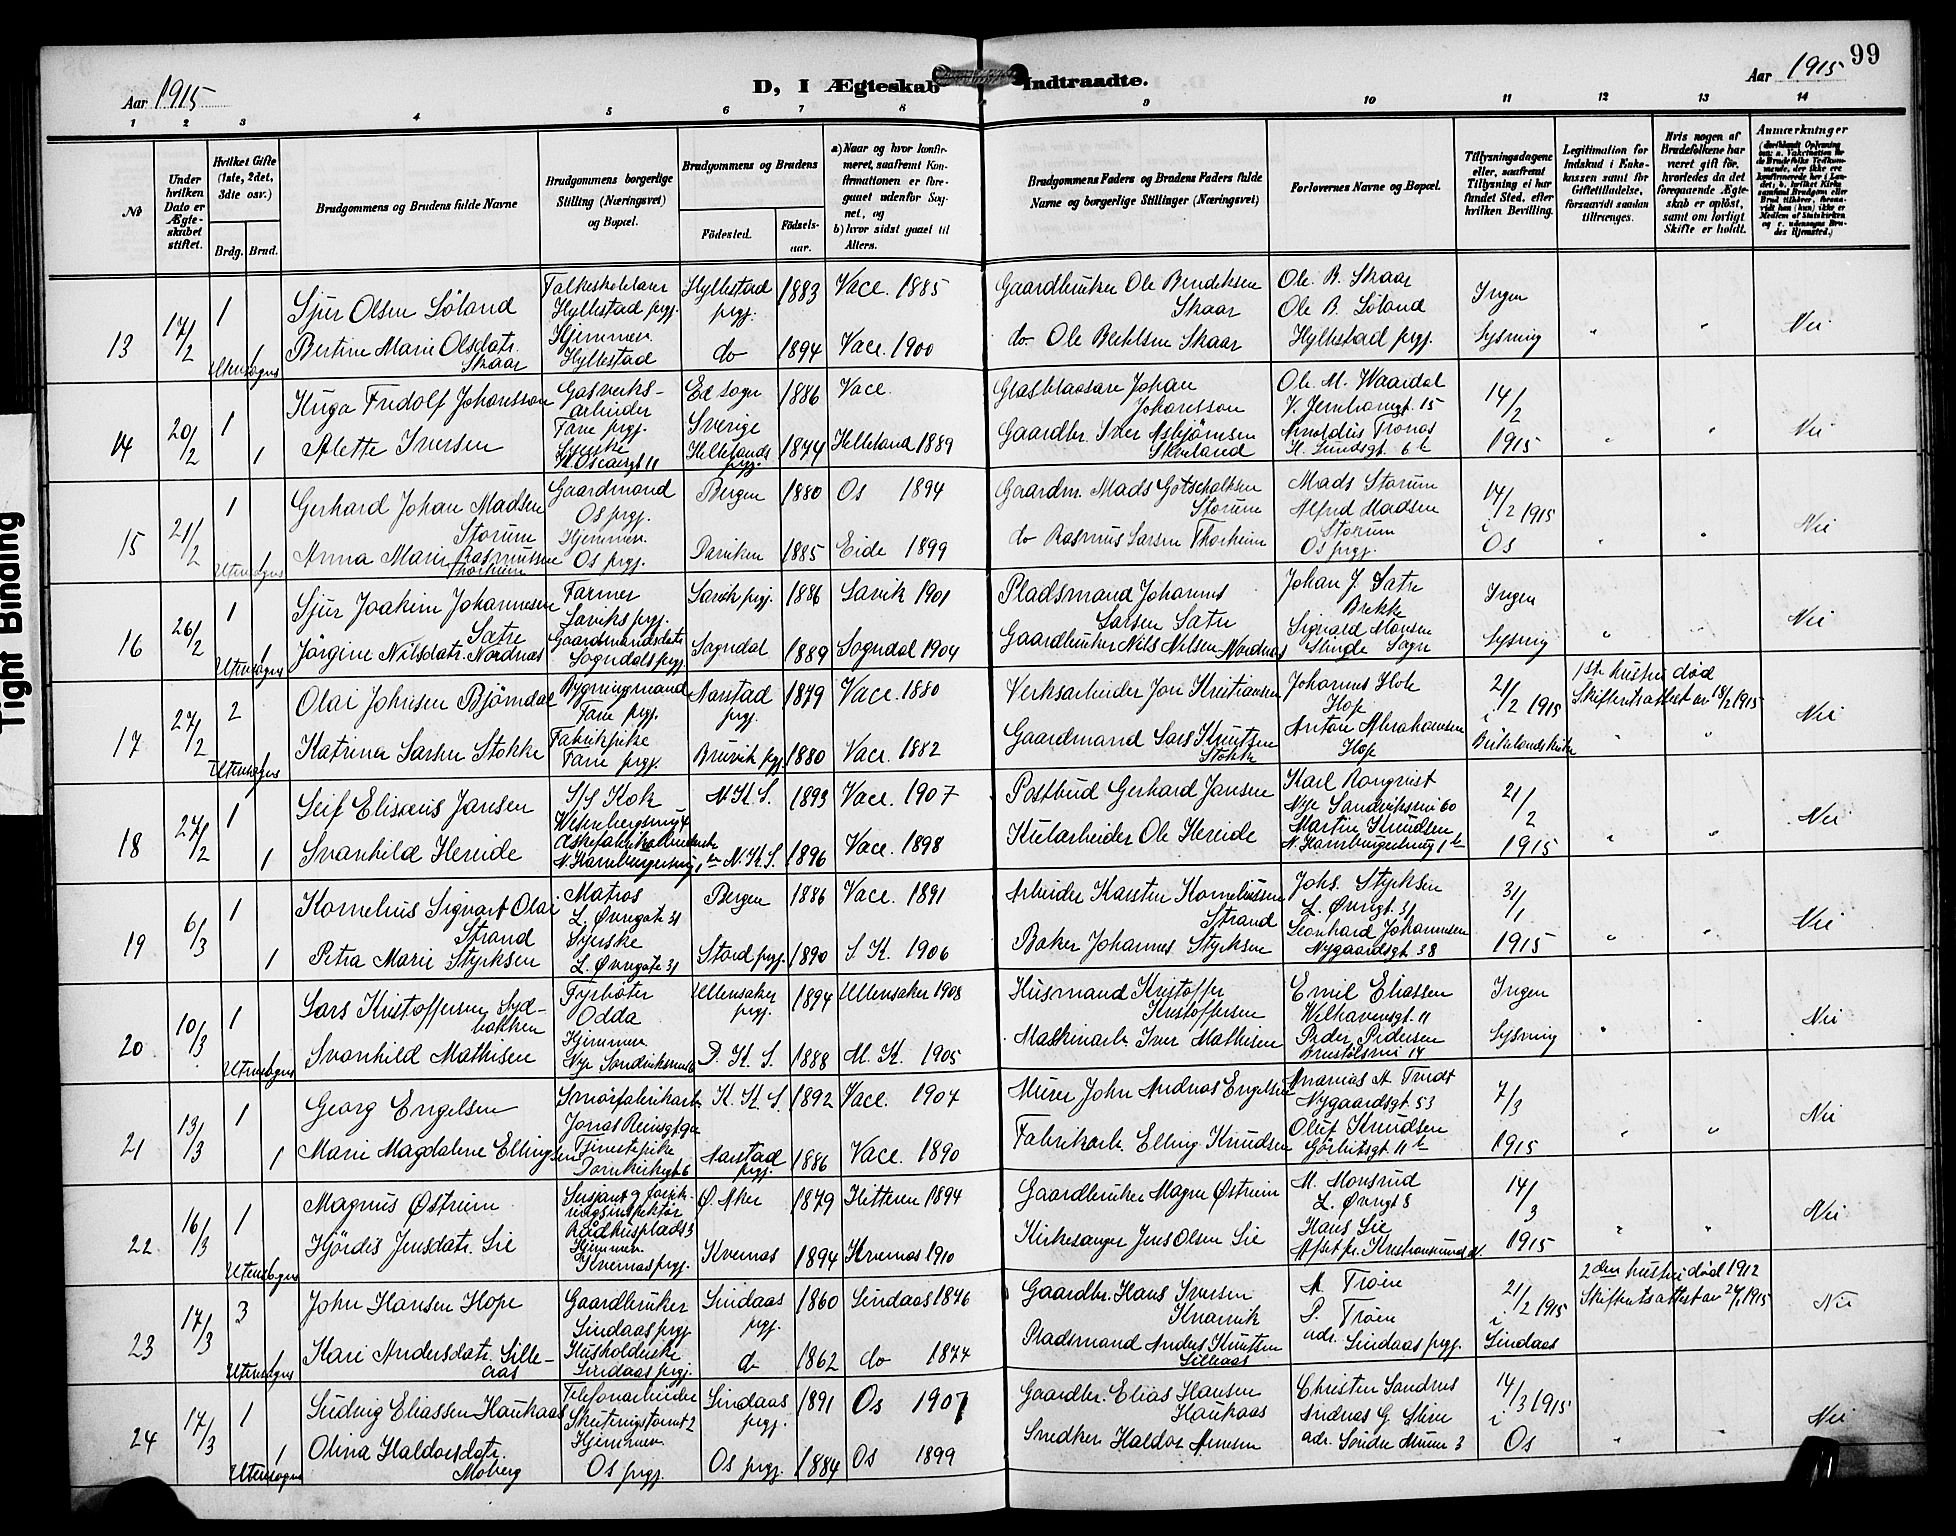 99
Aar 1915
D, I Ægteskab Indtraadte.
Aar 1915
1 2 3 4 5 6 7 8 9 10 11 12 13 14
No
Under hvilken Dato er Ægteskabet stiftet.
Hvilket Gifte (1ste, 2det, 3dte osv.)
Brdg. Brud.
Brudgommens og Brudens fulde Navne
Brudgommens borgerlige Stilling (Næringsvei) og Bopæl.
Brudgommens og Brudens
Fødested. Fødselsaar.
a) Naar og hvor konfirmeret, saafremt Konfirmationen er foregaaet udenfor Sognet, og
b) hvor sidst gaaet til Alters.
Brudgommens Faders og Brudens Faders fulde Navne og borgerlige Stillinger (Næringsvei)
Forlovernes Navne og Bopæl.
Tillysningsdagene eller, saafremt Tillysning ei har fundet Sted, efter hvilken Bevilling.
Legitimation for Indskud i Enkekassen samt for Giftetilladelse, forsaavidt saadan tiltrænges.
Hvis nogen af Brudefolkene har været gift før, hvorledes da det foregaaende Ægteskab er opløst, samt om lovligt Skifte er holdt.
Anmærkninger
13 17/2 1 Utensogns 1
Sjur Olsen Söland
Hyllestad prgj. Hyllestad prgj. 1883 Vacc. 1885
Gaardbruker Ole Bendiksen Skaar
Ole B. Skaar
Ole B. Söland
Hyllestad prgj.
Ingen Lysning " " Nei
Bertine Marie Olsdatr. Skaar
Hjemmev. Hyllestad do 1894 Vacc. 1900
do Ole Bertelsen Skaar
14 20/2 1 1
Hugo Fridolf Johansson
Gasverksarbeider Fane prgj. Ed sogn Sverige 1886 Vacc.
Glasblaasare Johan Johansson
Ole M. Waardal
V. Jernbanegt. 15
14/2 1915 " " Nei
Alette Iversen
Syerske Hellelands prgj. 1874 Helleland 1889
Gaardbr. Iver Asbjörnsen
Arnoldus Tronas
15 21/2 1 Utensogns 1
Gerhard Johan Madsen Storum
Gaardmand Os prgj. Bergen 1880 Os 1894
Gaardm. Mads Gotschalksen Storum
Mads Storum
Alfred Madsen Storum
Os prgj.
14/2 1915 i Os " " Nei
Anna Marie Rasmussen Thorheim
Hjemmev. Os prgj. Daviken 1885 Eide 1899
do Rasmus Larsen Thorheim
16 26/2 1 Utensogns 1
Sjur Joakim Johannesen Satre
Farmer Laviks prgj. Lavik prgj. 1886 Lavik 1901
Pladsmand Johannes Larsen Satre
Johan J. Satre
Brekke
Sigvard Monsen
Slinde Sogn
Ingen Lysning " " Nei
Jörgine Nilsdatr. Nordnas
Gaardmandsdatr. Sogndals prgj. Sogndal 1889 Sogndal 1904
Gaardbruker Nils Nilsen Nordnas
17 27/2 2 Utensogns 1
Olai Johnsen Björndal
Bygningsmand Fane prgj. Aarstad prgj. 1879 Vacc. 1880
Verksarbeider Jon Kristiansen
Johannes Hole
Hop
Anton Abrahamsen
Hop
21/2 1915 i Birkelands kirke
1ste hustru død
Skifteretsattest av 18/2 1915
" " Nei
Katrina Larsen Stokke
Fabrikpike Fane prgj. Bruvik prgj. 1880 Vacc. 1882
Gaardmand Lars Knutsen Stokke
18 27/2 1 1
Leif Elisæus Jansen
S/S Kok N. K. S. 1893 Vacc. 1907
Postbud Gerhard Jansen
Karl Ronqvist
Nye Sandviksvei 60
Martin Knudsen
21/2 1915 " " Nei
Svanhild Hereide
N. K. S. 1896 Vacc. 1898
Ole Hereide
19 6/3 1 1
Kornelius Sigvart Olai Strand
Matros L. Øvregate 31 Bergen 1886 Vacc. 1891
Arbeider Karsten Korneliussen Strand
Johs. Styrksen
L. Øvregt. 31
Leonhard Johannesen
Nygaardsgt. 38
31/1 1915 " " Nei
Petra Marie Styrksen
Syerske L. Øvregate 31 Stord prgj. 1890 S. K. 1906
Baker Johannes Styrksen
20 10/3 1 Utensogns 1
Lars Kristoffersen Sydbakken
Fyrböter Odda Ullensaker prgj. 1894 Ullensaker 1908
Husmand Kristoffer Kristoffersen
Emil Eliassen
Welhavensgt. 11
Peder Pedersen
Ingen Lysning " " Nei
Svanhild Mathisen
Hjemmev. Nye Sandviksvei D. K. S. 1888 M. K. 1905
Maskinarb. Iver Mathisen
21 13/3 1 1
Georg Engelsen
Smörfabrikarb. K. K. S. 1892 Vacc. 1904
Murer John Andreas Engelsen
Nygaardsgt. 53
Oluf Knudsen
7/3 1915 " " Nei
Marie Magdalene Ellingsen
Tjenestepike Domkirkegt 6 Aarstad prgj. 1886 Vacc. 1890
Fabrikarb. Elling Knudsen
22 16/3 1 Utensogns 1
Magnus Østrem
Raadhusplads 3 Ø. Aker 1879 Hitteren 1894
Gaardbruker Magne Østrem
M. Monsrud
L. Øvregt 8
Hans Lie
14/3 1915 " " Nei
Hjördis Jensdatr. Lie
Hjemmev. Kvernes prgj. Kvernes 1894 Kvernes 1910
Kirkesanger Jens Olsen Lie
23 17/3 3 Utensogns 1
John Hansen Hope
Gaardbruker Lindaas prgj. Lindaas prgj. 1860 Lindaas 1876
Gaardbr. Hans Iversen Knarvik
A. Tröen
P. Tröen
adr. Lindaas prgj.
21/2 1915 i Lindaas
2den hustru død 1912
Skifteretsattest av 1915
Nei
Kari Andersdatr. Silleaas
Husholderske Lindaas prgj. do 1862 do 1874
Pladsmand Anders Knutsen Silleaas
24 17/3 1 Utensogns 1
Ludvig Eliassen Haukaas
Telefonarbeider Lindaas prgj. 1891 Os 1907
Gaardbr. Elias Hansen Haukaas
Christen Sandnes
Andreas G. Stive
14/3 1915 i Os " " Nei
Olina Haldorsdatr. Moberg
Hjemmev. Os prgj. Os prgj. 1884 Os 1899
Snedker Haldor Arnesen
Tight Binding